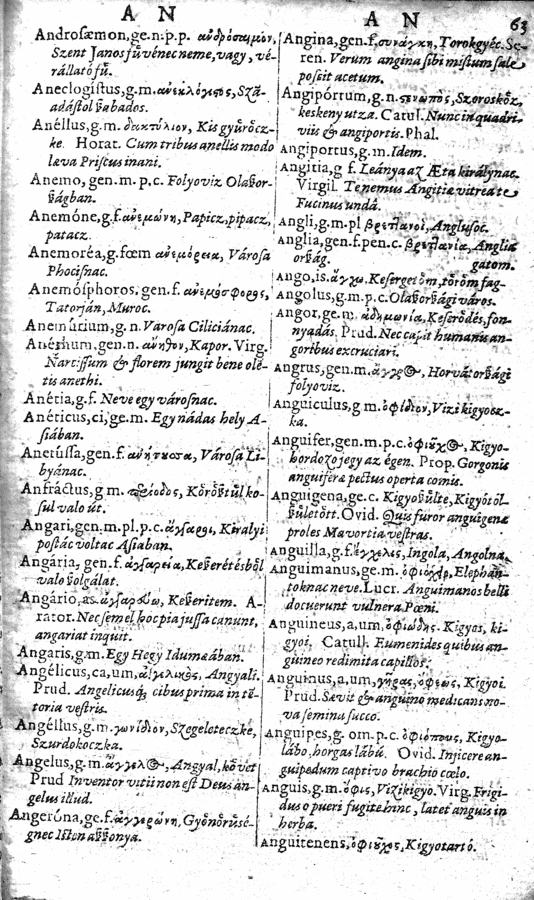 A N
Androsæmon, ge.n. p.p. ἀνδρόσαιμον,
Szent Janos fű vénec neme, vagy, vé-
rállato fű.
Aneclogístus, g.m. ἀνεκλόγιςος, Szá-
adástol szabados.
Anéllus, g.m. δακτύλιον, Kis gyűrőcz-
ke. Horat. Cum tribus anellis modo
læva Priscus inani.
Anemo, gen.m. p.c. Folyoviz Olaszor-
szágban.
Anemóne, g.f. ἀνεμώνη, Papicz, pipacz,
patacz.
Anemoréa, g.fœm ἀνεμόρεια, Városa
Phocisnac.
Anemósphoros, gen.f.
Tatorján, Muroc.
Anemurium, g.n. Varosa Ciliciánac.
Anéthum, gen.n. ἄνηθον, Kapor. Virg.
Narcissum & florem jungit bene olē-
tis anethi.
Anétia, g.f. Neve egy városnac.
Anéticus, ci, ge.m. Egy nádas hely A-
siában.
Anetússa, gen.f. ἀνήτυσσα, Városa Li-
byánac.
Anfráctus, g.m. Kőrőktűl ko-
sul valo út.
Angari, gen.m. pl. p.c. ἄγγαροι, Kiralyi
postác voltac Asiaban.
Angária, gen.f. ἀγγαρεία, Keszerétésből
valo szolgálat.
Angário, as. ἀγγαρεύω, Keszeritem. A-
rator. Nec semel hoc pia jussa canunt,
angariat inquit.
Angaris, g.m. Egy Hegy Idumæában.
Angélicus, ca, um, ἀγγελικὸς, Angyali.
Prud. Angelicusq; cibus prima in tē-
toria vestris.
Angéllus, g.m. γωνίδιον, Szegeleteczke,
Szurdokoczka.
Angelus, g.m. ἄγγελος, Angyal, kővet
Prud Inventor vitii non est Deus an-
gelus illud.
Angeróna, ge.f. Győnőrűsé-
gnec Isten aszszonya.
A N 63
Angina, gen.f. συνάγχη, Torokgyéc. Se-
ren. Verum angina sibi mistum sale
poscit acetum.
Angipórtum, g.n. στενωπὸς, Szoros kőz,
keskeny utza. Catul. Nunc in quadri-
viis & angiportis. Phal.
Angiportus, g.m. Idem.
Angitia, g f. Leánya az Æta királynac.
Virgil. Tenemus Angitiæ vitrea te
Fucinus undâ.
Angli, g.m. pl βρετανοὶ, Anglusoc.
Anglia, gen.f. pen.c. βρετανία, Anglia
orszāg. gatom.
Ango, is. ἄγχω, Kesergetőm, tőrőm fag-
Angolus, g.m. p.c. Olaszországi város.
Angor, ge.m. ἀδημωνία, Keserődés, fon-
nyadás, Prud. Nec capit humanis an-
goribus excruciari.
Angrus, gen.m. ἄγγρος, Horvátországi
folyoviz.
Anguiculus, g m. ὀφίδιον, Vizi kigyocz-
ka.
Anguifer, gen.m. p.c. ὀφιοῦχος, Kigyo-
hordozo jegy az égen. Prop. Gorgonis
anguiferæ pectus operta comis.
Anguigena, ge.c. Kigyoszűlte, Kigyótól
szűletőtt. Ovid. Quis furor anguigenæ
proles Mavortia vestras.
Anguilla, g.f. ἔγχελις, Ingola, Angolna.
Anguimanus, ge.m. Elephān-
toknac neve. Lucr. Anguimanos belli
docuerunt vulnera Pœni.
Anguineus, a, um, ὀφιώδης. Kigyos, ki-
gyoi. Catull. Eumenides quibus an-
guineo redimita capillos.
Anguinus, a, um, ὄφεως, Kigyoi.
Prud. Sævit & anguino medicans no-
va semina succo.
Anguipes, g-om. p.c. ὀφιόπους, Kigyo-
lábo, horgas lábú. Ovid. Injicere an-
guipedum captivo brachio cœlo.
Anguis, g.m. ὄφις, Vizi kigyo. Virg. Frigi-
dus o pueri fugite hinc, latet anguis in
herba.
Anguitenens, ὀφιοῦχος, Kigyotartó.